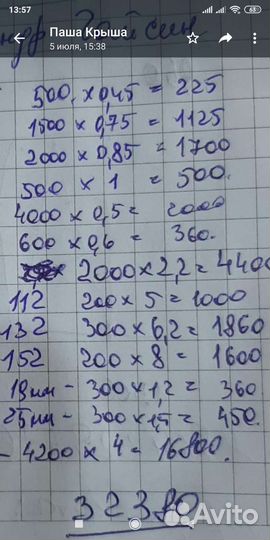 13:57
63
Паша Крыша
5 июля, 15:38
500. x 0,45 = 225
1500 x 0,75 = 1125
2000 x 0,85 = 1700
500 x 1 = 500.
4000 x 0,5 = 2000
600 x 0,6 = 360.
2000 x 2,2 = 4400
112 200 x 5 = 1000
132 300 x 6,2 = 1860
152 200 x 8 = 1600
19мм - 300 x 1,2 = 360
25мм - 300 x 1,5 = 450.
- 4200 x 4 = 16800.
32380
Avito